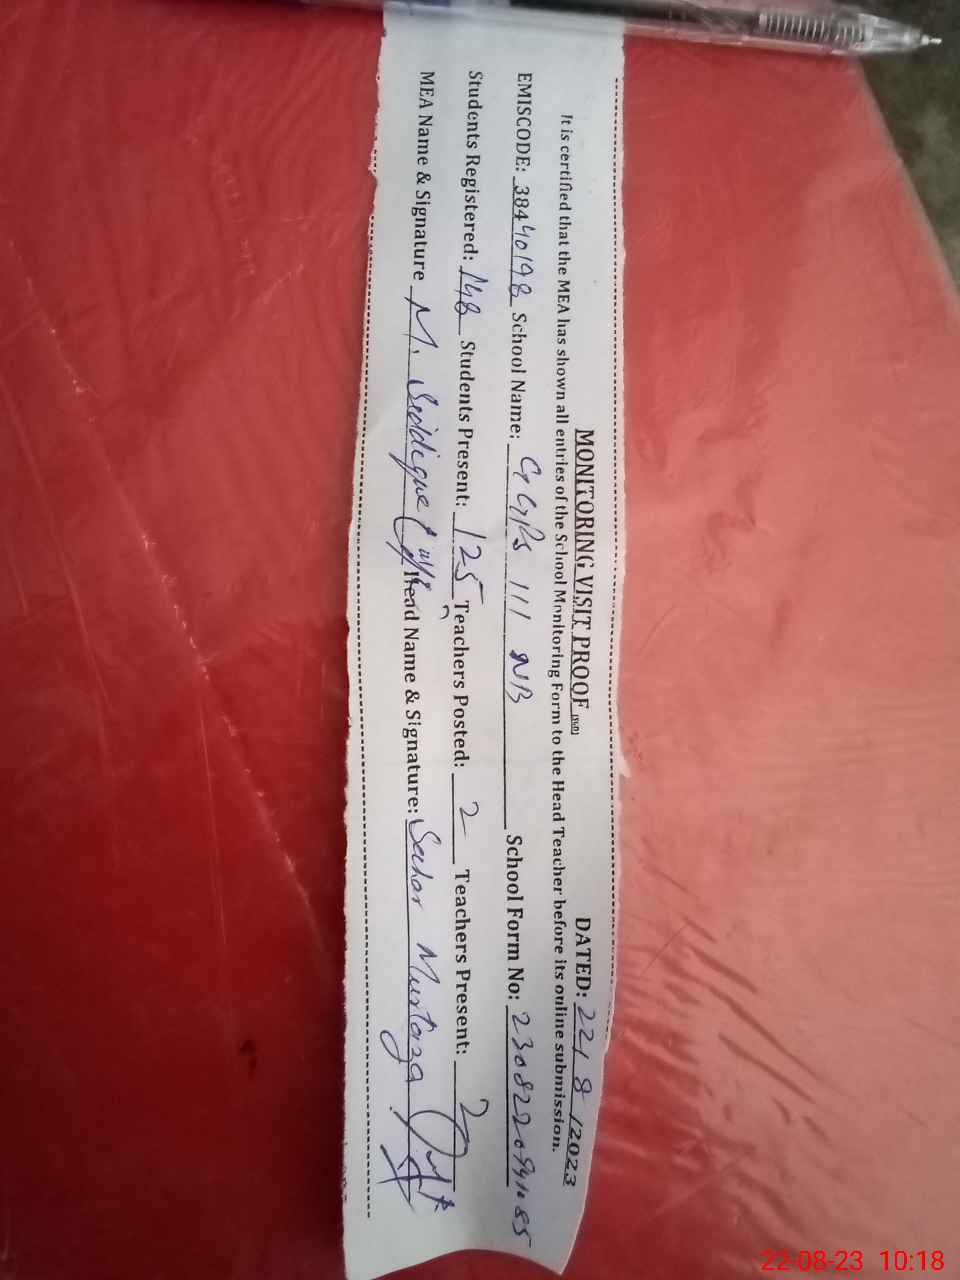 MONITORING VISIT PROOF DATED: 22/8/2023
It is certified that the MEA has shown all entries of the School Monitoring Form to the Head Teacher before its online submission.
EMISCODE: 38440198 School Name: GGPS 111 NB School Form No:
Students Registered: 148 Students Present: 125 Teachers Posted: 2 Teachers Present: 2
MEA Name & Signature M. Siddique Head Name & Signature: Sehar Murtaza
22-08-23 10:18